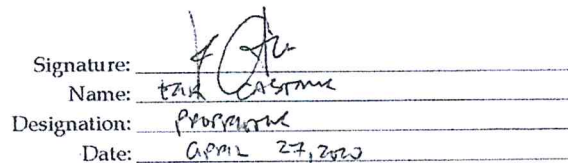 Signature:
Name:
Designation: Proprietor
Date: April 27, 2020